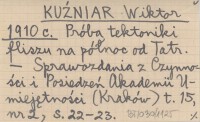 KUŹNIAR Wiktor
1910 c. Próba tektoniki
fliszu na północ od Tatr.
— Sprawozdania z Czynno-
ści i Posiedzeń Akademii U-
miejętności (Kraków) t. 15,
nr 2, s. 22-23.